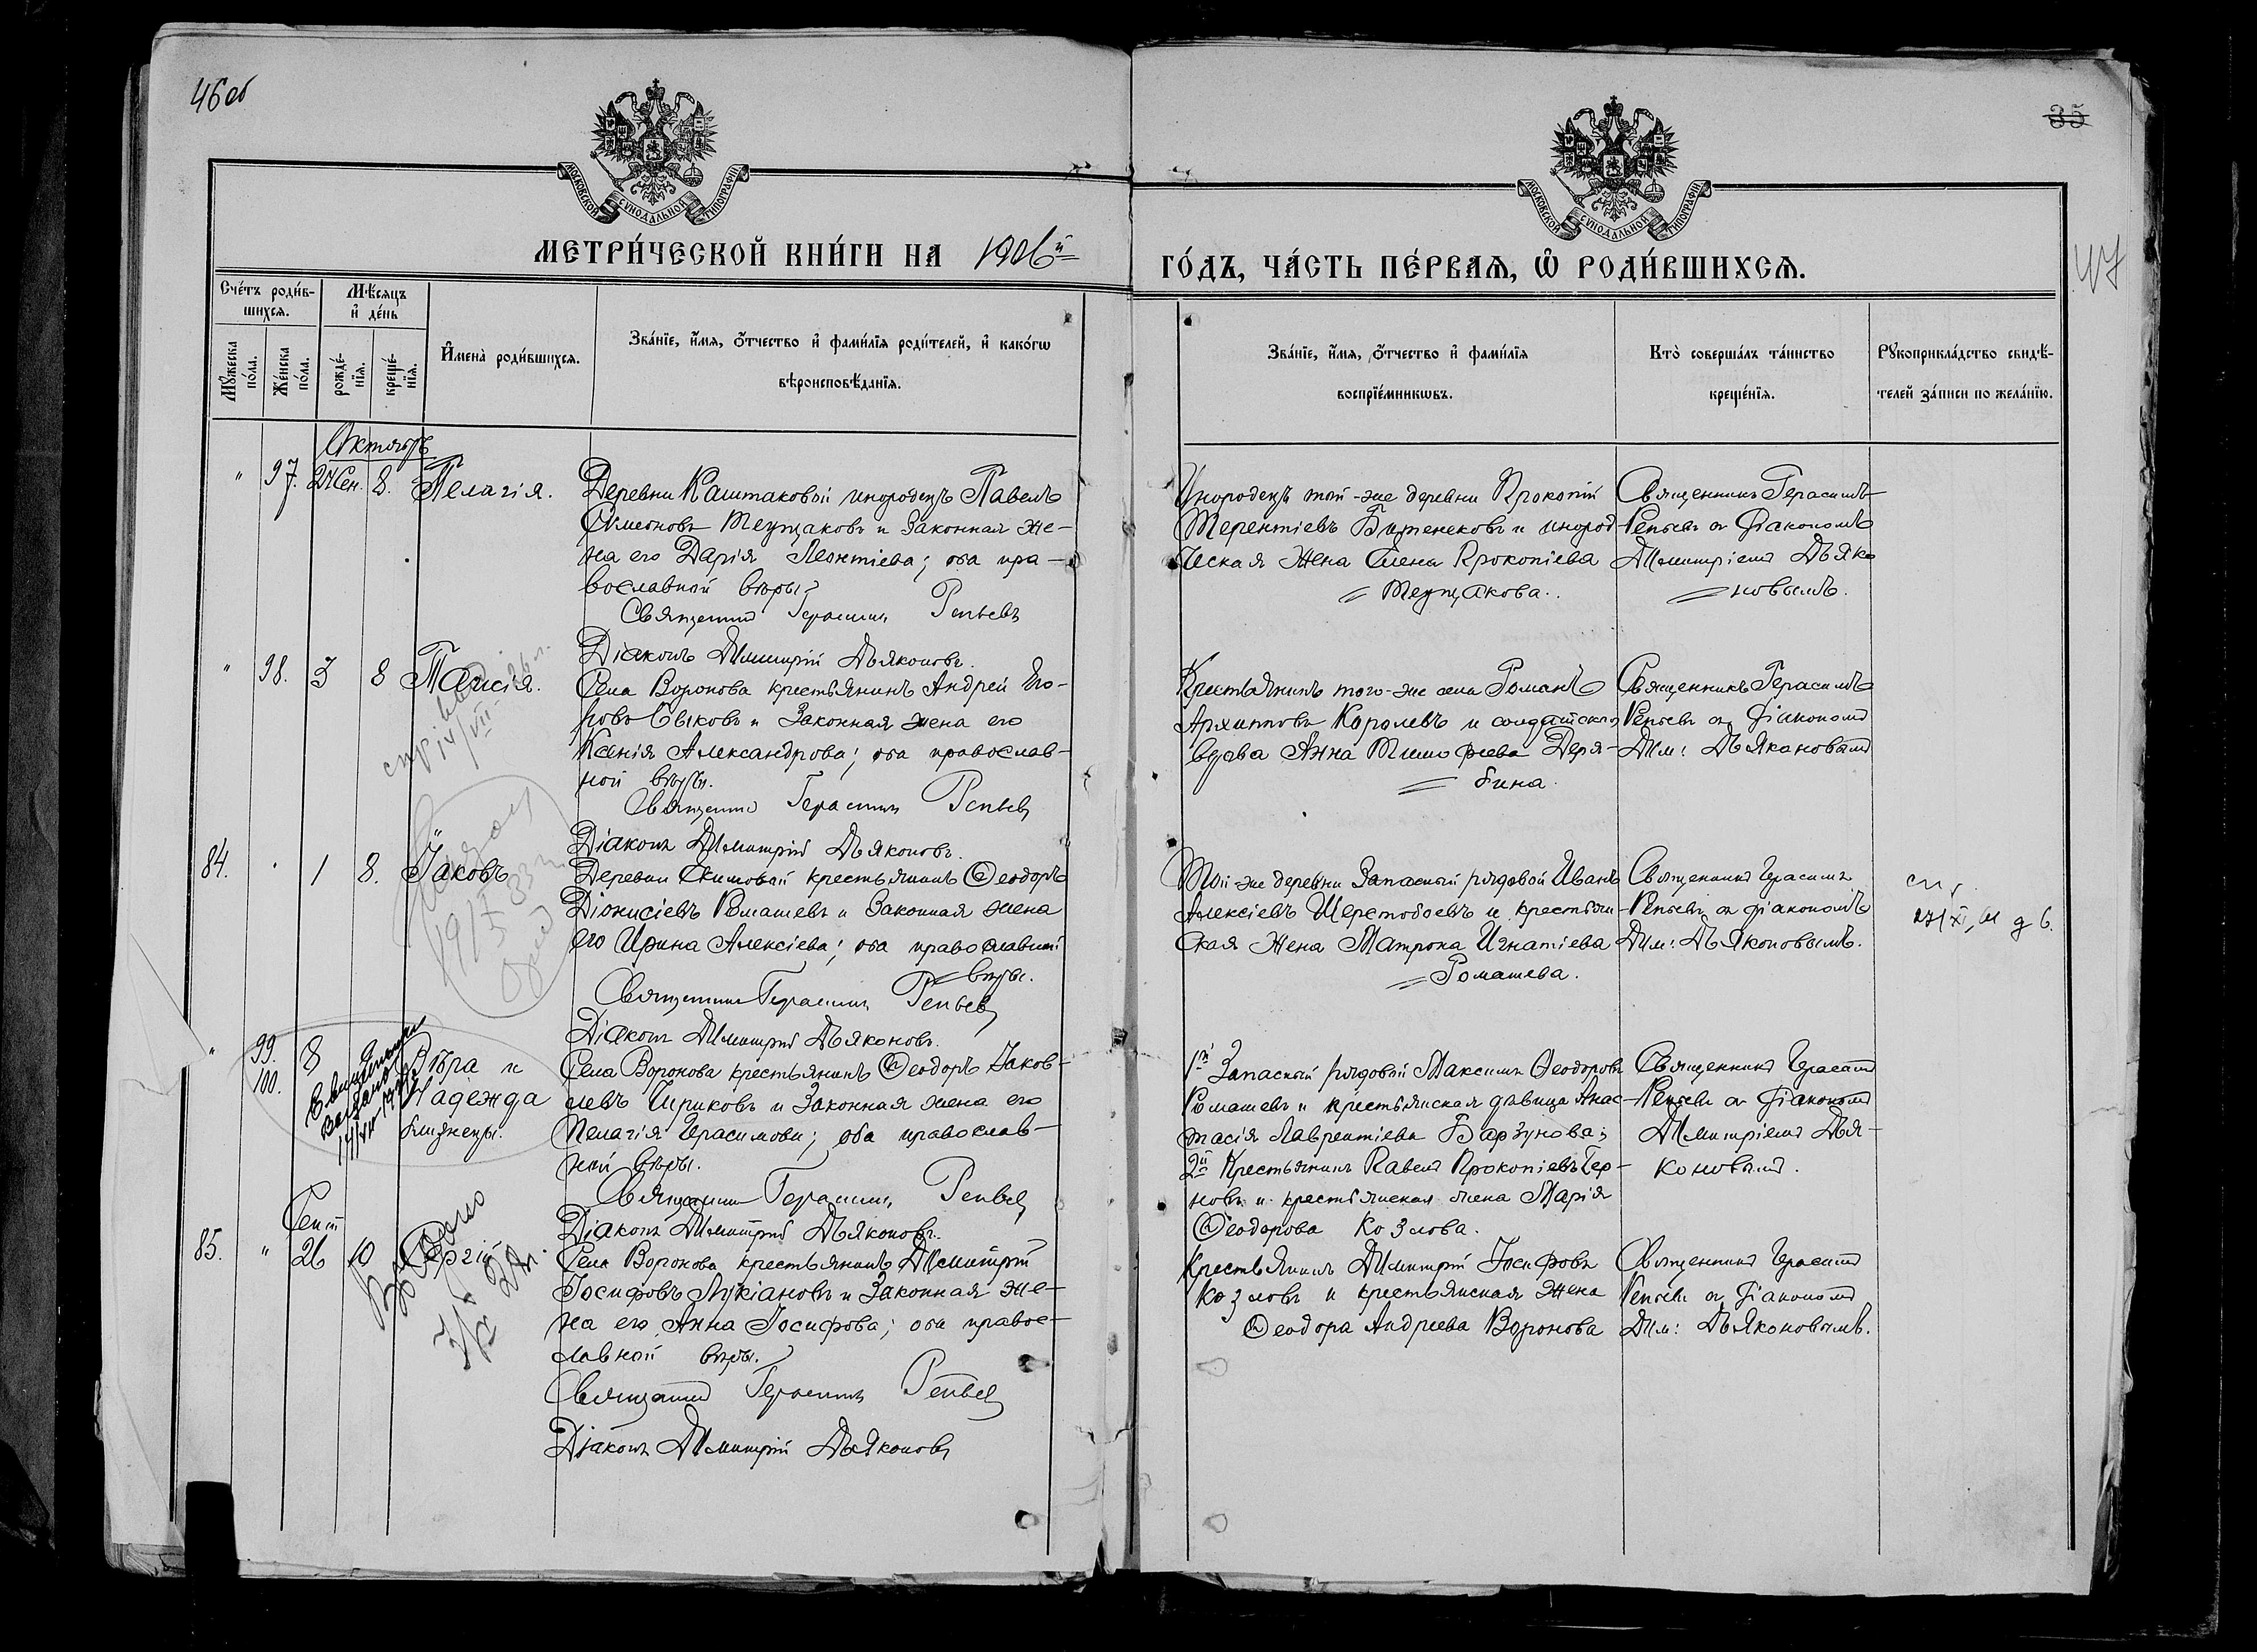 46об
35
47
МОСКОВСКОЙ СУНОДАЛЬНОЙ ТИПОГРАФІИ
МОСКОВСКОЙ СУНОДАЛЬНОЙ ТИПОГРАФІИ
МЕТРИ́ЧЕСКОЙ КНИ́ГИ НА 1906й
ГО́ДЪ, ЧА́СТЬ ПЕ́РВАѦ, Ѽ РОДИ́ВШИХСѦ.
Сче́тъ роди́в-
шихсѧ.
Мѣ́сѧцъ
и҆ де́нь
Мꙋ́жеска
по́ла.
Же́нска
по́ла.
рожде́-
нїѧ.
креще́-
нїѧ.
И҆мена̀ роди́вшихсѧ.
Зва́нїе, и҆́мѧ, ѻ҆́тчество и҆ фами́лїѧ роди́телей, и҆ како́гѡ
вѣроисповѣ́данїѧ.
Зва́нїе, и҆́мѧ, ѻ҆́тчество и҆ фами́лїѧ
воспрїе́мникѡвъ.
Кто̀ соверша́лъ та́инство
креще́нїѧ.
Рꙋкоприкла́дство свидѣ́-
телей за́писи по жела́нїю.
Октябрь
" 97. 24 Сен. 8. Пелагія.
Деревни Каштаковой инородецъ Павелъ
Симеоновъ Теущаковъ и законная же-
на его Дарія Леонтіева; оба пра-
вославной вѣры.
Священникъ Герасимъ Репьевъ
Діаконъ Димитрій Дьяконовъ.
Инородецъ той-же деревни Прокопій
Терентіевъ и инород-
ческая жена Елена Прокопіева
Теущакова.
Священникъ Герасимъ
Репьевъ съ діакономъ
Димитріемъ Дьяко
новымъ.
" 98. 3 8 Таисія.
Села Воронова крестьянинъ Андрей Его-
ровъ Быковъ и законная жена его
Ксенія Александрова; оба православ-
ной вѣры.
Священникъ Герасимъ Репьевъ
Діаконъ Димитрій Дьяконовъ.
Крестьянинъ того-же села Романъ
Архиповъ Королевъ и солдатская
вдова Анна Тимофеева Деря-
бина.
Священникъ Герасимъ
Репьевъ съ діакономъ
Дим: Дьяконовымъ
84. " 1 8. Іаковъ
Деревни крестьянинъ Ѳеодоръ
Діонисіевъ Ромашевъ и законная жена
его Ирина Алексіева; оба православной
вѣры.
Священникъ Герасимъ Репьевъ
Діаконъ Димитрій Дьяконовъ.
Той-же деревни запасный рядовой Иванъ
Алексіевъ Шерстобоевъ и крестьян-
ская жена Матрона Игнатіева
Ромашева.
Священникъ Герасимъ
Репьевъ съ діакономъ
Дим: Дьяконовымъ.
" 99. 100. 8 Вѣра и
Надежда
близнецы.
Села Воронова крестьянинъ Ѳеодоръ Іаков-
левъ Шириковъ и законная жена его
Пелагія Герасимова; оба православ-
ной вѣры.
Священникъ Герасимъ Репьевъ
Діаконъ Димитрій Дьяконовъ.
1й Запасный рядовой Максимъ Ѳеодоровъ
Ромашевъ и крестьянская дѣвица Анас-
тасія Лаврентіева Барзунова;
2й Крестьянинъ Павелъ Прокопіевъ
и крестьянская жена Марія
Ѳеодорова Козлова.
Священникъ Герасимъ
Репьевъ съ діакономъ
Димитріемъ Дья-
коновымъ.
Сент
85. " 26 10 Сергій
Села Воронова крестьянинъ Димитрій
Іосифовъ Лукіановъ и законная же-
на его Анна Іосифова; оба правос-
лавной вѣры.
Священникъ Герасимъ Репьевъ
Діаконъ Димитрій Дьяконовъ
Крестьянинъ Димитрій Іосифовъ
Козловъ и крестьянская жена
Ѳеодора Андреева Воронова
Священникъ Герасимъ
Репьевъ съ діакономъ
Дим: Дьяконовымъ.